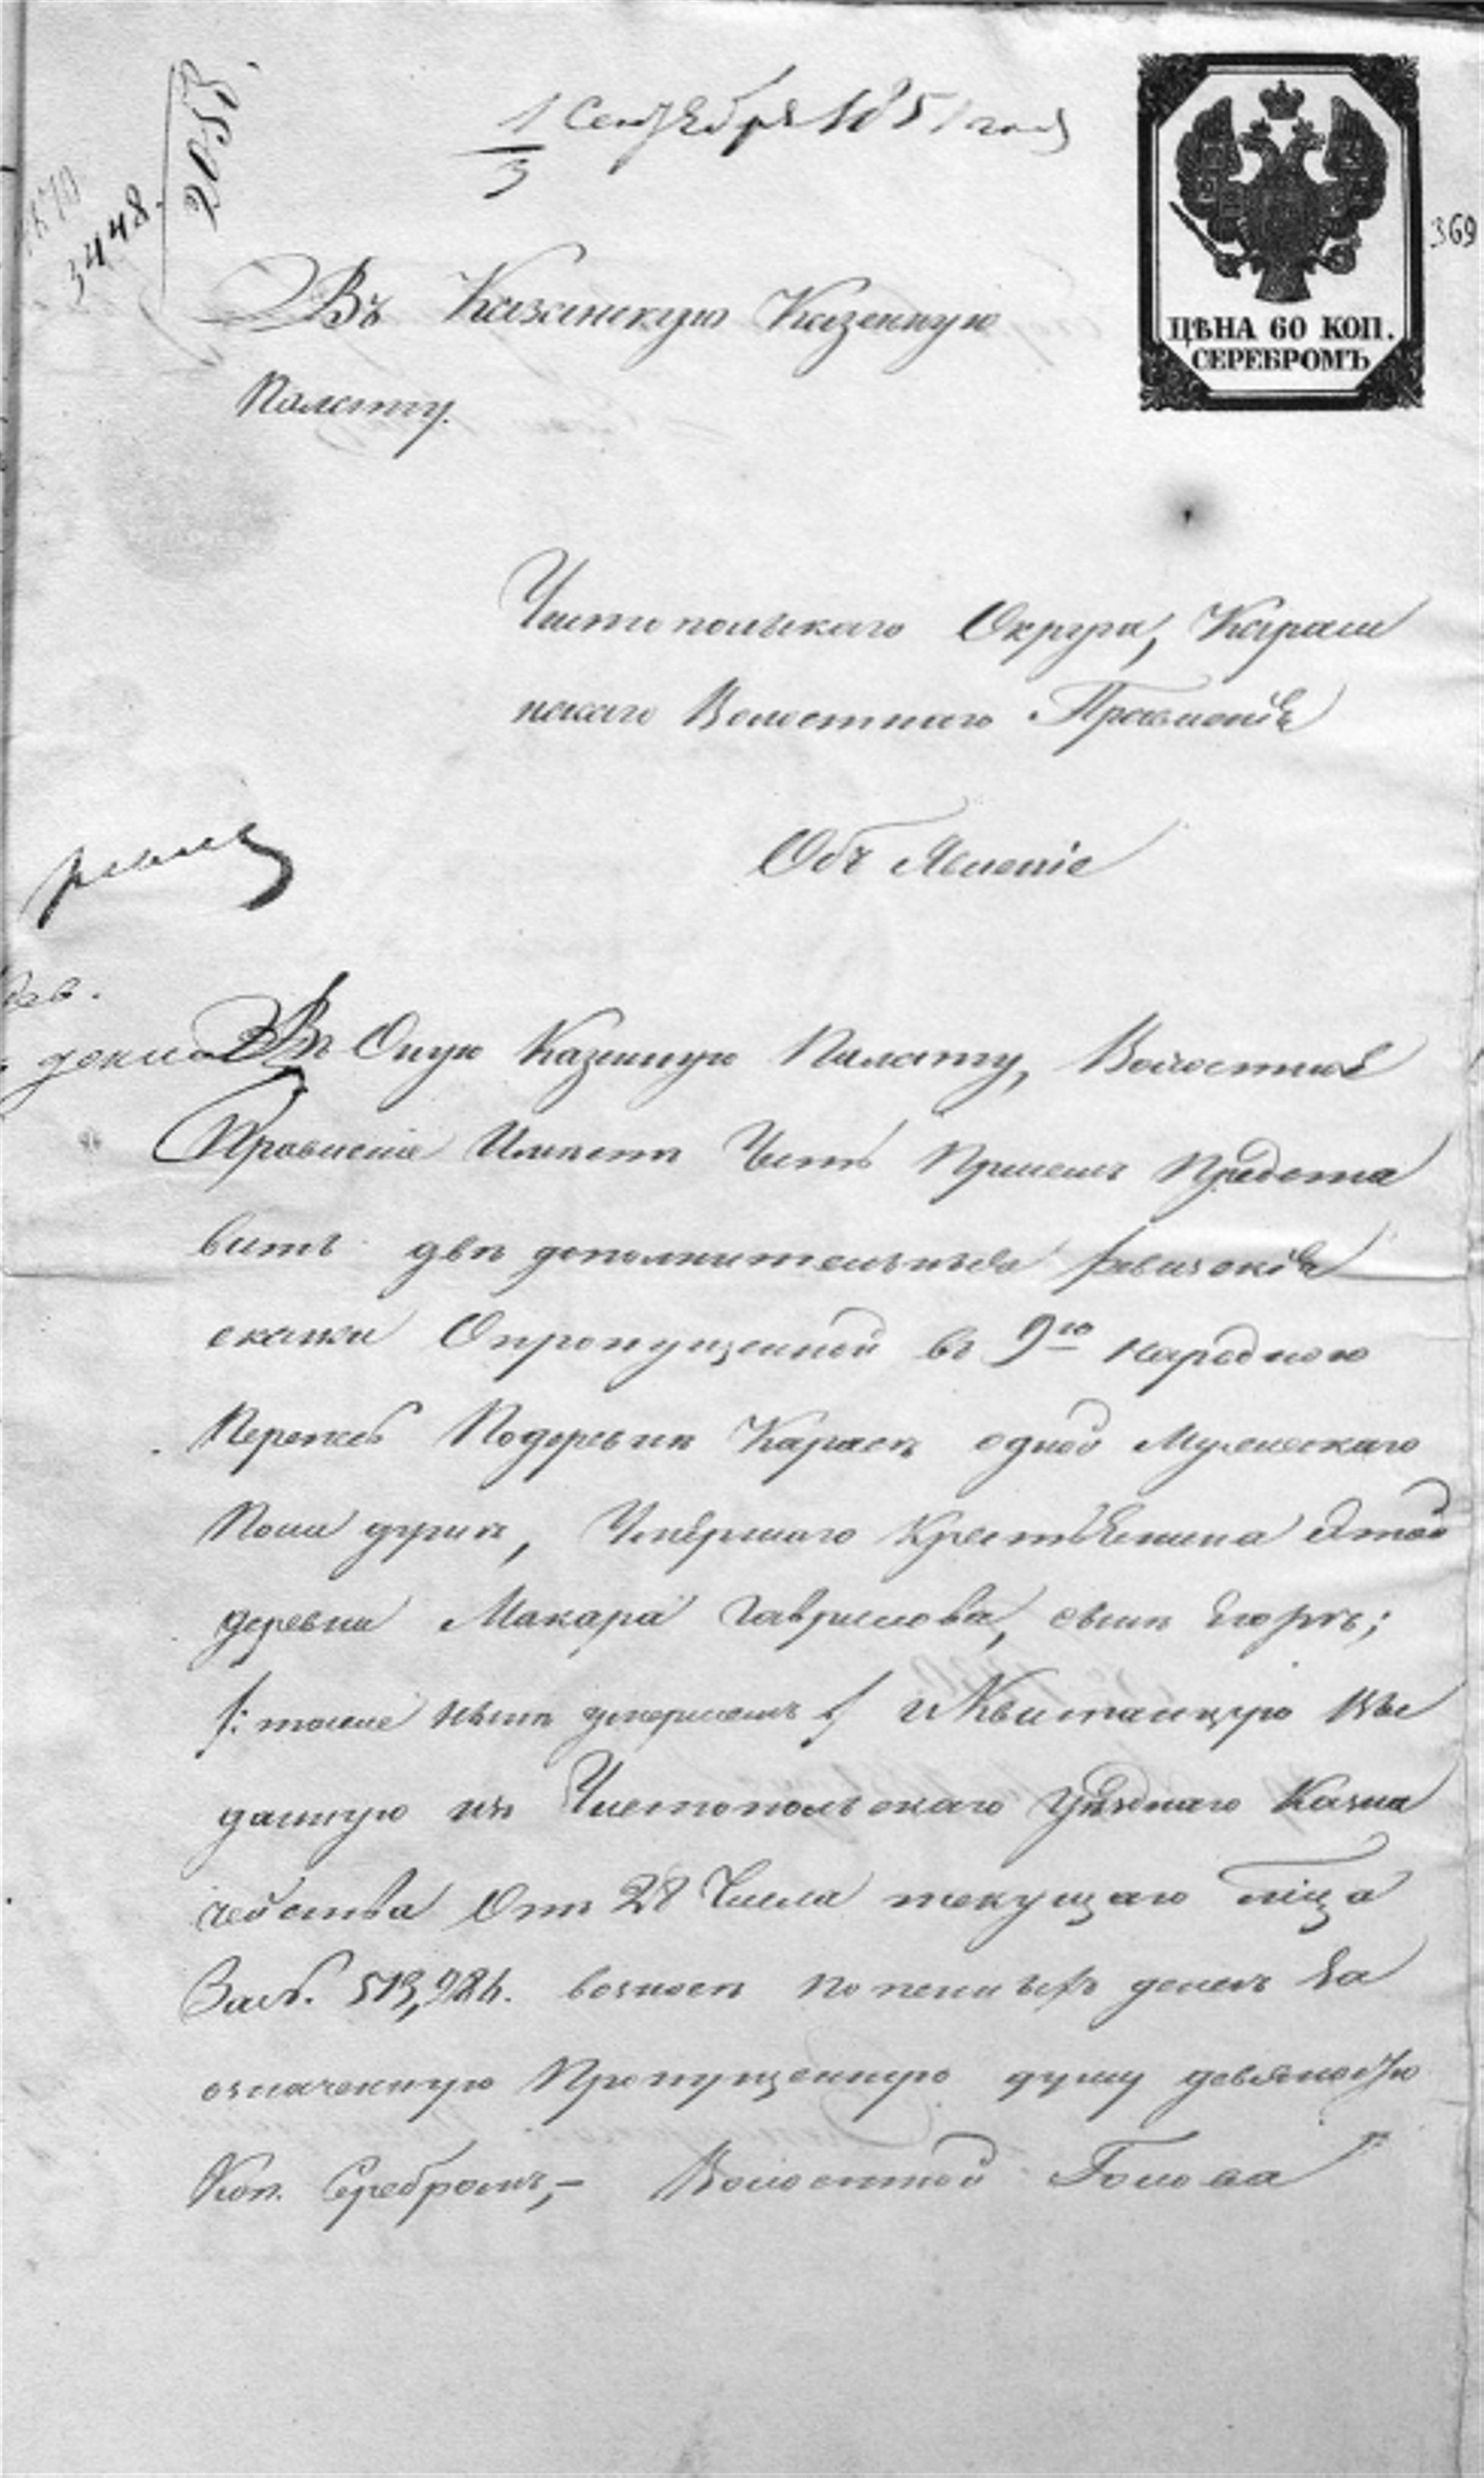 2055.
3448.
1 Сентября 1851 года
3
369
ЦѢНА 60 КОП.
СЕРЕБРОМЪ
Въ Казанскую Казенную
Палату.
Чистопольскаго Округа, Караш
нскаго Волостнаго Правленія
Объ Явленіе
Въ Оную Казенную Палату, Волостное
Правленіе Имѣетъ Честь Присемъ Предста
вить двѣ дополнительныя ревизскія
скаски Опропущенной въ 9ю народною
Перепись Подеревнѣ Карасъ одной Мужескаго
Пола души, Умершаго Крестьянина Этой
деревни Макара Гаврилова, сынъ Егоръ;
/: тоже нынѣ умершемъ :/ иКвитанцую Вы
данную изъ Чистопольскаго Уѣзднаго Казна
чейства Отъ 28 Числа текущаго мѣца
За№. 513,984. взносѣ денегъ За
означенную Пропущенную душу девяносто
Коп. Серебромъ,- Волостной Голова